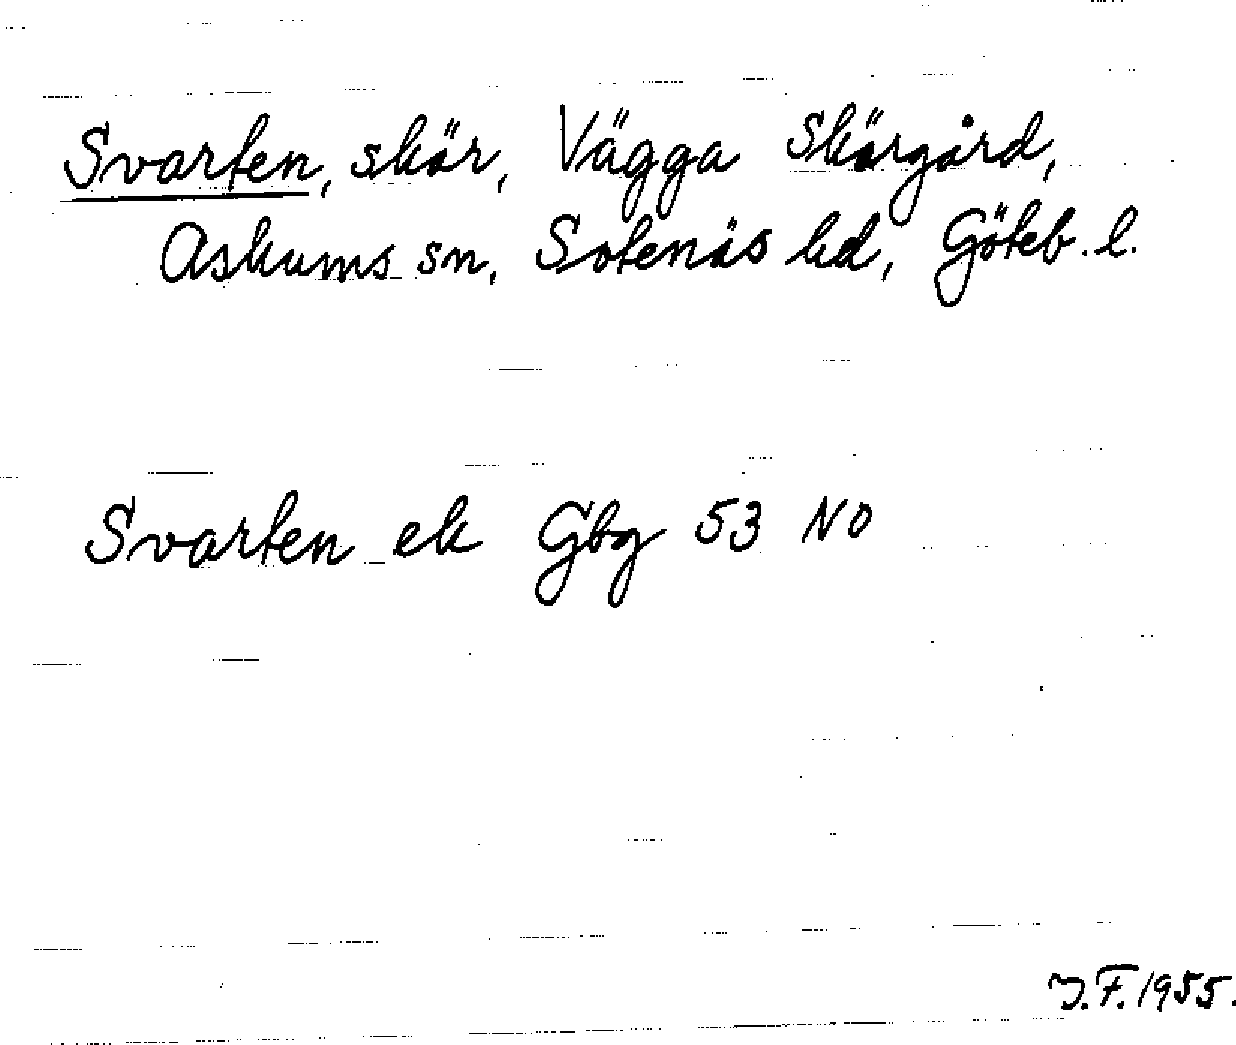 Svarten, skär, Vägga Skärgård,
Askums sn, Sotenäs hd, Göteb. l.
Svarten ek Gbg 53 NO
J.F. 1955.